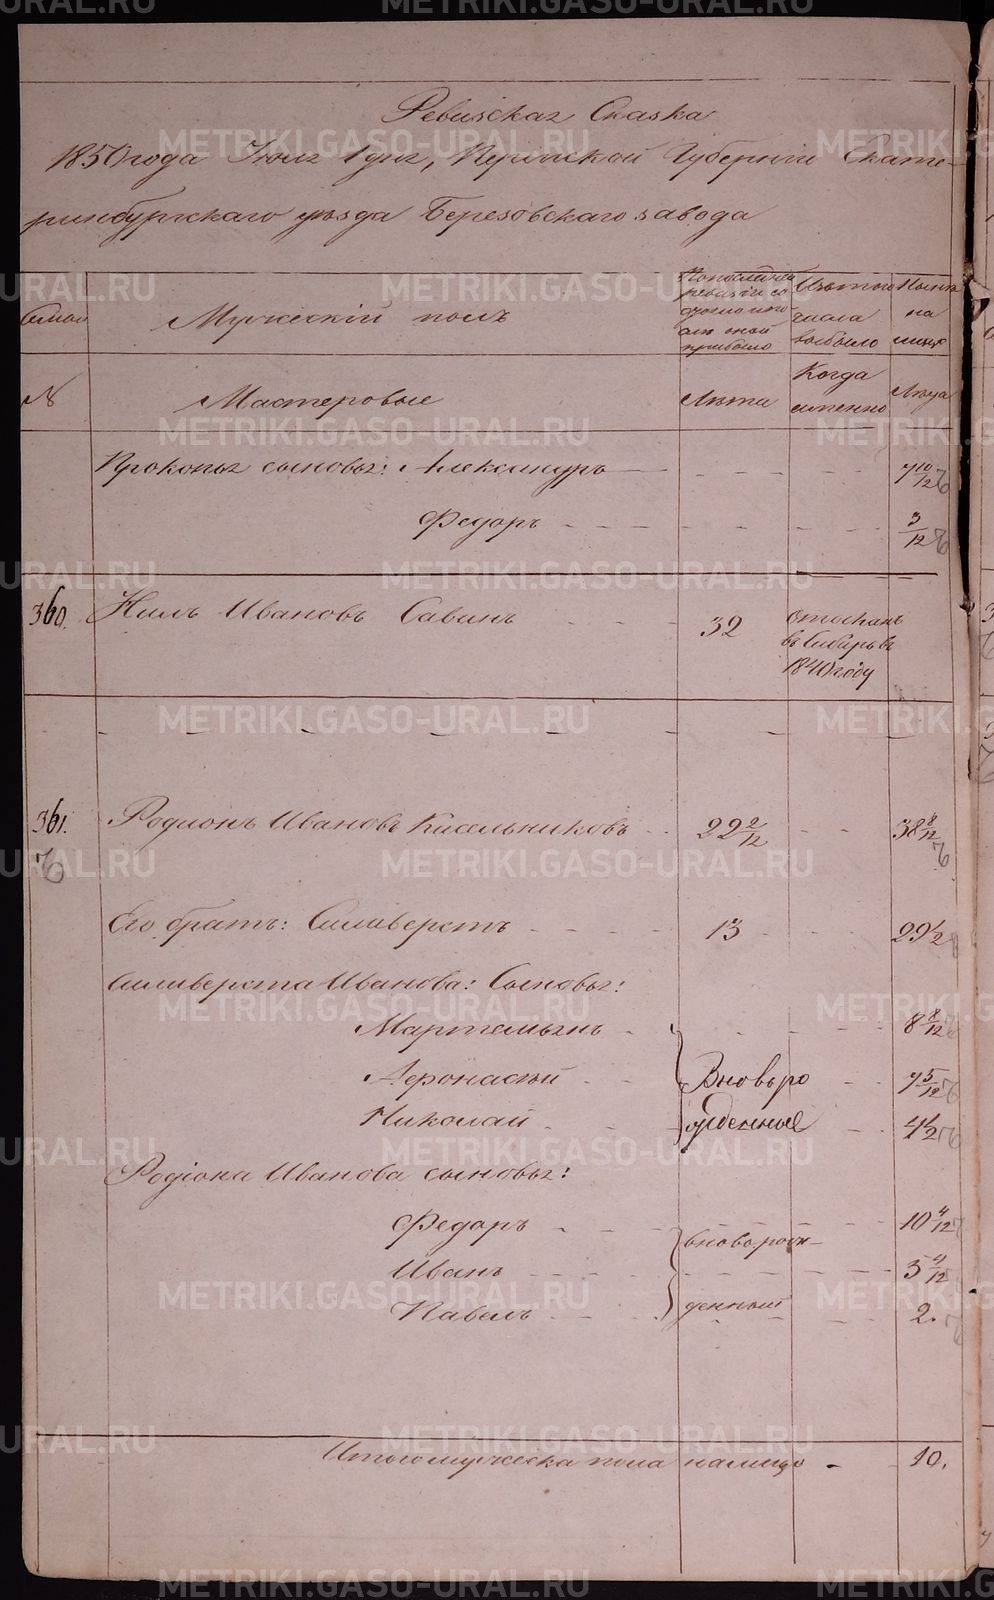 Ревизская Сказка
1850 года Июля 1 дня, Пермской Губерніи Екате-
ринбургскаго уѣзда Березовскаго завода
Семьи
Мужескій полъ
По последней
ревизіи со
стояло и по
слѣ оной
прибыло
Изъ того
числа
выбыло
Нынѣ
на
лицо
№
Мастеровые
Лѣта
Когда
именно
Лѣта
Прокопья сыновья: Александръ 7 10/12
Федоръ 3/12
360. Нилъ Ивановъ Савинъ 32 отосланъ
въ Сибирь въ
1840 году
361. Родионъ Ивановъ Кисельниковъ 22 2/12 38 8/12
Его братъ: Силиверстъ 13 29 1/2
Силиверста Иванова: Сыновья:
Мартемьянъ 8 8/12
Афонасій Вновь ро 7 5/12
Николай жденные 4 1/2
Родіона Иванова сыновья:
Федоръ 10 4/12
вновь рож-
Иванъ 5 4/12
Павелъ денный 2.
Итого мужеска пола налицо 10.
METRIKI.GASO-URAL.RU